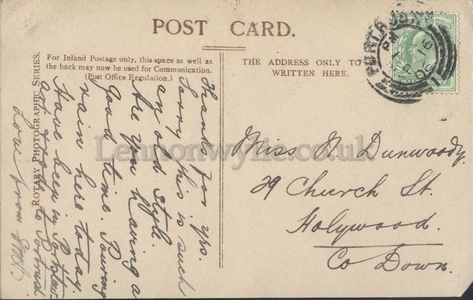 POST CARD.
For Inland Postage only, this space as well as
the back may now be used for Communication.
(Post Office Regulation.)
THE ADDRESS ONLY TO
WRITTEN HERE.
ROTARY PHOTOGRAPHIC SERIES.
Thanks for yrs.
Sorry this is such
an old style.
Are you having a
good time. Pouring
rain here today.
Have been in
Love from
Lennonwylie.co.uk
Miss N. Dunwoody.
29 Church St.
Holywood.
Co Down.